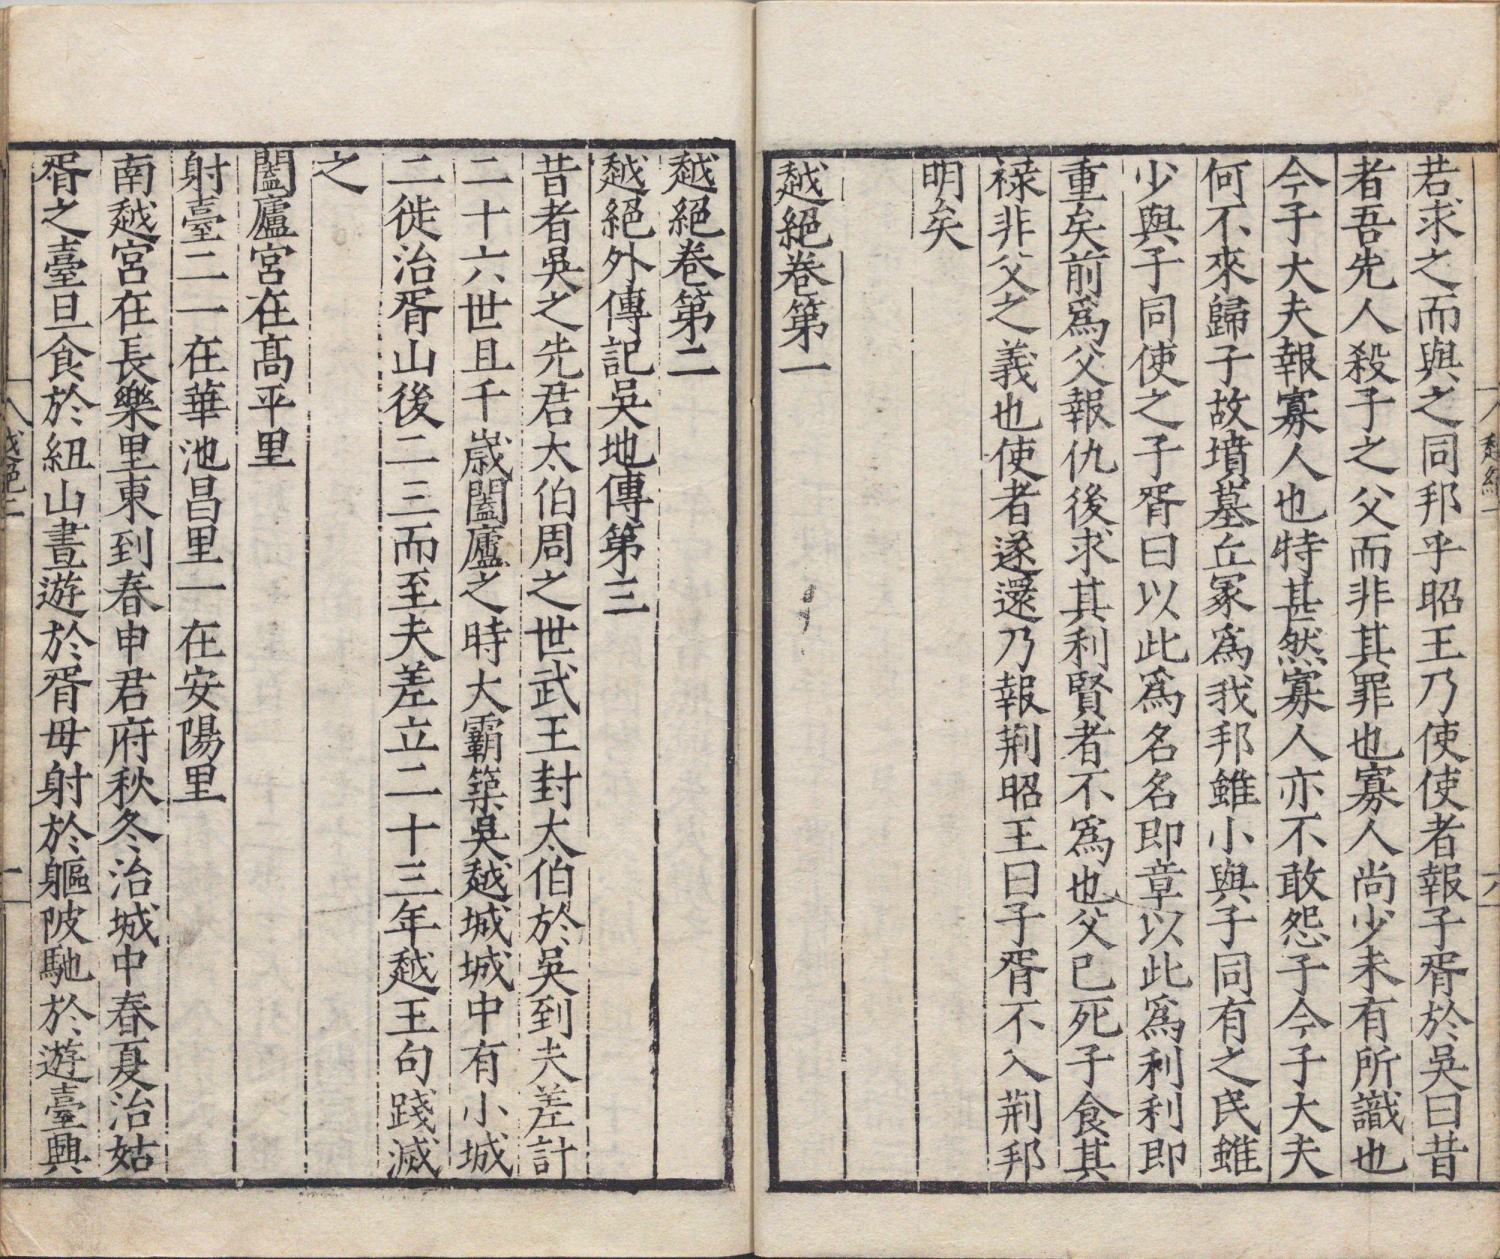 若求之而與之同邦乎昭王乃使使者報子胥於吳曰昔
者吾先人殺子之父而非其罪也寡人尚少未有所識也
今子大夫報寡人也特甚然寡人亦不敢怨子今子大夫
何不來歸子故墳墓丘冢爲我邦雖小與子同有之民雖
少與子同使之子胥曰以此爲名名即章以此爲利利即
重矣前爲父報仇後求其利賢者不爲也父已死子食其
祿非父之義也使者遂還乃報荆昭王曰子胥不入荆邦
明矣
越絕卷第一
越絕卷第二
越絕外傳記吳地傳第三
昔者吳之先君太伯周之世武王封太伯於吳到夫差計
二十六世且千歲闔廬之時大霸築吳越城城中有小城
二徙治胥山後二三而至夫差立二十三年越王句踐滅
之
闔廬宮在高平里
射臺二一在華池昌里一在安陽里
南越宮在長樂里東到春申君府秋冬治城中春夏治姑
胥之臺旦食於紐山晝遊於胥毋射於軀陂馳於遊臺興
越絕一
六
越絕二
一